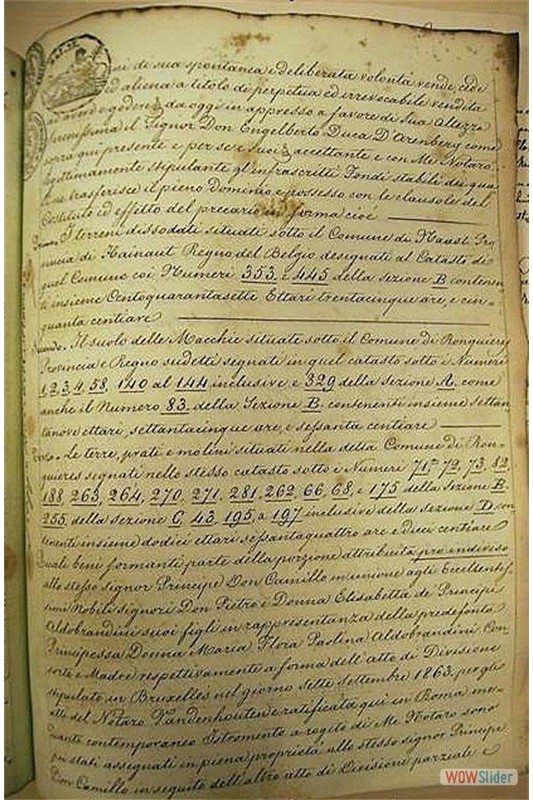 ni di sua spontanea e deliberata volontà vende, cede
ed aliena a titolo di perpetua ed irrevocabile vendita
da oggi in appresso a favore di Sua Altezza
Serenissima il Signor Don Engelberto Duca D'Arenberg come
sopra qui presente e per se e suoi accettante e con Me Notaro
legittimamente stipulante gl'infrascritti Fondi stabili dei qua
li ne trasferisce il pieno dominio e possesso con le clausole del
Costituto ed effetto del precario in forma cioè
Primo. I terreni dissodati situati sotto il Comune di Naast Pro
vincia di Hainaut Regno del Belgio designati al Catasto di
quel Comune coi Numeri 353. e 445 della sezione B contenen
ti insieme Centoquarantasette Ettari trentacinque are, e cin-
quanta centiare
Secondo. Il suolo delle Macchie situate sotto il Comune di Ronquieres
Provincia e Regno sudetti segnati in quel catasto sotto i Numeri
1, 2, 3, 4, 58, 140 al 144 inclusive e 329 della Sezione A. come
anche il Numero 83. della Sezione B. contenenti insieme Settan
tanove ettari, settantacinque are, e sessanta centiare
Terzo. Le terre, prati e molini situati nella detta Comune di Ron-
quieres segnati nello stesso catasto sotto i Numeri 71, 72, 73, 82,
188 263, 264, 270, 271, 281, 262, 66, 68, e 175 della Sezione B.
255. della sezione C, 43, 195, a 197 inclusive della sezione D, con
tenenti insieme dodici ettari sessantaquattro are e dieci centiare
Quali beni formanti parte della porzione attribuita pro indiviso
allo stesso signor Principe Don Camillo in unione agli Eccellentis
simi Nobili Signori Don Pietro e Donna Elisabetta de' Principi
Aldobrandini suoi figli in rappresentanza della predefonta
Principessa Donna Maria Flora Paolina Aldobrandini Con
sorte e Madre respettivamente a forma dell'atto di Divisione
stipulato in Bruxelles nel giorno sette settembre 1863. per gli
atti del Notaro Vandenhouten e ratificata qui in Roma me
diante contemporaneo Istromento a rogito di Me Notaro sono
poi stati assegnati in piena proprietà allo stesso signor Principe
Don Camillo in seguito dell'altro atto di Divisione parziale
WOWSlider